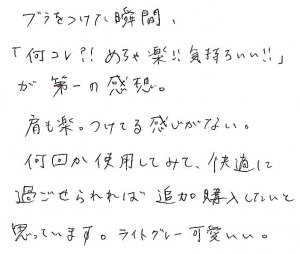 ブラをつけた瞬間、
「何コレ?!めちゃ楽!!気持ちいい!!」
が第一の感想。
肩も楽。つけてる感じがない。
何回か使用してみて、快適に
過ごせられれば追加購入したいと
思っています。ライトグレー可愛いい。